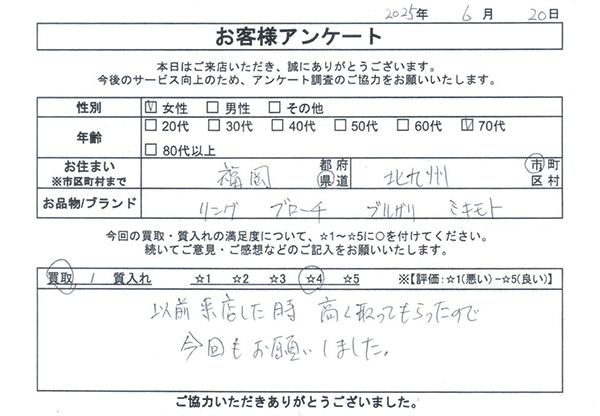 2025年 6月 20日
お客様アンケート
本日はご来店いただき、誠にありがとうございます。
今後のサービス向上のため、アンケート調査のご協力をお願いいたします。
性別 ☑女性 □男性 □その他
年齢 □20代 □30代 □40代 □50代 □60代 ☑70代
□80代以上
お住まい ※市区町村まで 福岡 都府県道 北九州 市町区村
お品物/ブランド リング ブローチ ブルガリ ミキモト
今回の買取・質入れの満足度について、☆1～☆5に○を付けてください。
続いてご意見・ご感想などのご記入をお願いいたします。
買取 / 質入れ ☆1 ☆2 ☆3 ☆4 ☆5 ※【評価:☆1(悪い)-☆5(良い)】
以前来店した時 高く取ってもらったので
今回もお願いしました。
ご協力いただきありがとうございました。